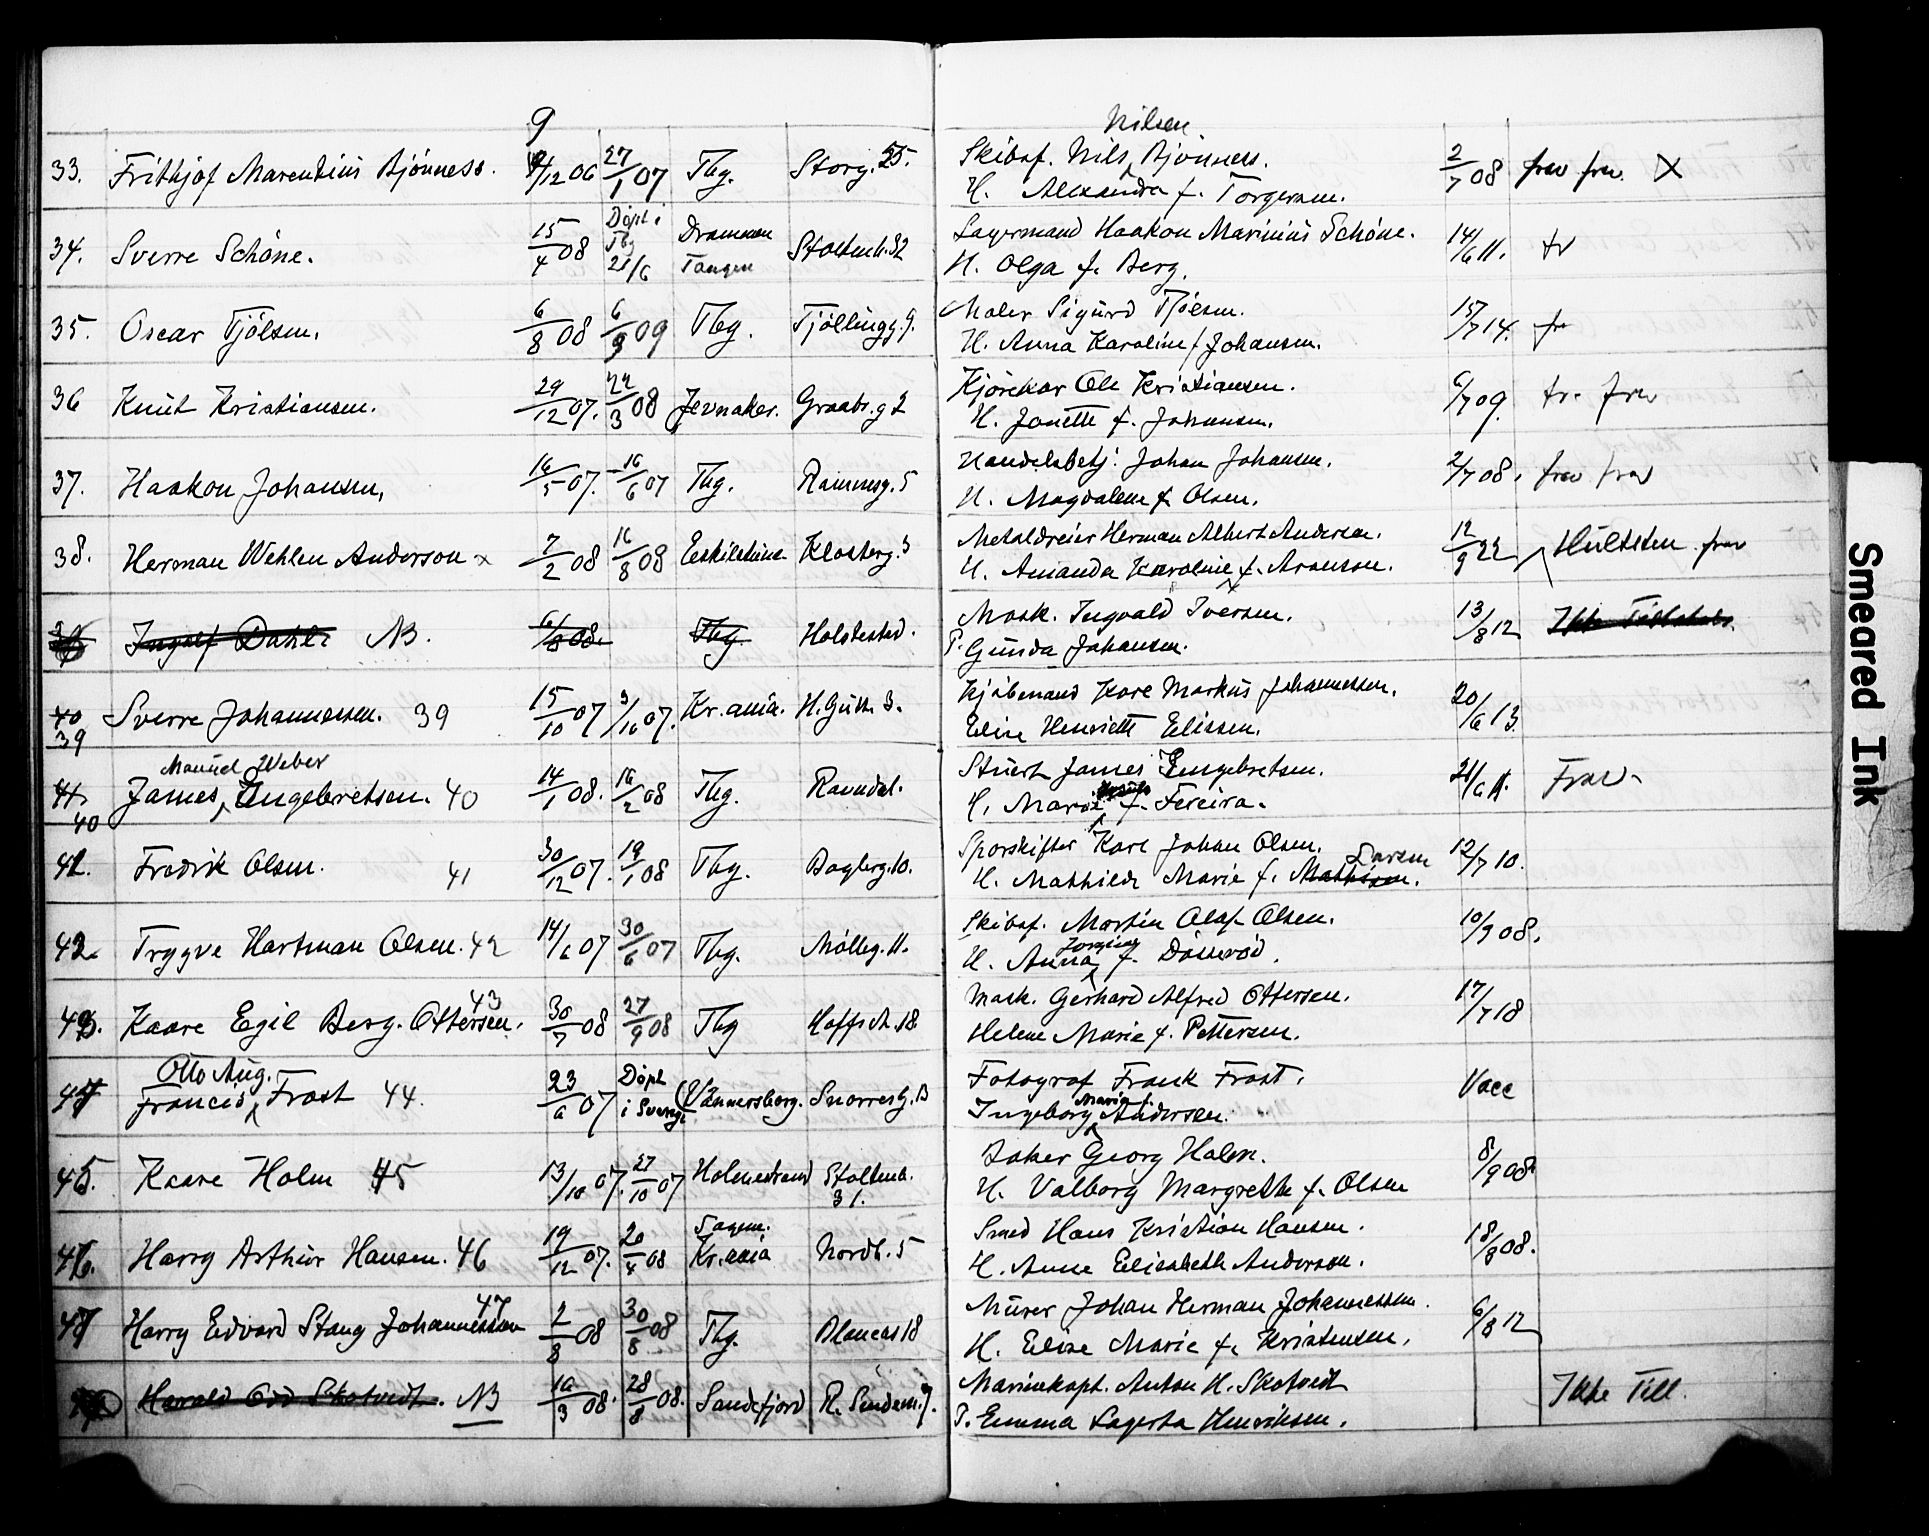 9
33. Frithjof Marentius Bjönness. 9/12 06 27/1 07 Tbg. Storg. 25. Skibsf. Nils Nilsen Bjönness. 2/7 08 frav frav. X
H. Alexandra f. Torgersen.
34. Sverre Schöne. 15/4 08 Döpt i Tbg 21/6 Drammen Tangen Stoltenb. 32 Lagermand Haakon Marinius Schöne. 14/6 11. fr
H. Olga f. Berg.
35. Oscar Tjölsen. 6/8 08 6/9 09 Tbg. Tjöllingg. 9. Maler Sigurd Tjölsen. 15/7 14. fr
H. Anna Karoline f. Johansen.
36 Knut Kristiansen. 29/12 07. 22/3 08 Jevnaker. Graabr.g 2 Kjörekar Ole Kristiansen. 6/7 09. fr. frav
H. Janette f. Johansen.
37. Haakon Johansen. 16/5 07. 16/6 07 Tbg. Rammsg. 5 Handelsbetj. Johan Johansen. 2/7 08. frav frav
H. Magdalene f. Olsen.
38. Herman Wehlen Anderson x 7/2 08 16/8 08 Eskilstuna Klosterg. 3 Metaldreier Herman Albert Andersen. 12/9 22 Hultsten frav
H. Amanda Karoline f. Aronson.
Ingolf Dahl. NB. 6/8 08. Tbg Holstested. Mask. Ingvald Iversen. 13/8 12
P. Gunda Johansen.
40 39 Sverre Johannessen. 39 15/10 07 3/10 07. Kr.ania. H. Guth. 3. Kjöbmand Kare Markus Johannessen. 20/6 13.
Elise Henriette Elissen.
41 40 James Manuel Weber Engebretsen. 40 14/1 08. 16/2 08 Tbg. Ravndal. Stuert James Engebretsen. 21/6 11. Frav
H. Maria f. Fereira.
42. Fredrik Olsen. 41 30/12 07. 19/1 08 Tbg. Bagleg. 10. Sporskifter Kare Johan Olsen. 12/7 10.
H. Mathilde Marie f. Mathisen. Larsen
43. Trygve Hartman Olsen. 42 14/6 07 30/6 07 Tbg. Mölleg. 11. Skibsf. Martin Olaf Olsen. 10/9 08.
H. Anna Jorgine f. Dösseröd.
43. Kaare Egil Berg. Ottersen. 43 30/7 08 27/9 08 Tbg Hoffsch. 18 Mask. Gerhard Alfred Ottersen. 17/7 18
Helene Marie f. Pettersen.
Francis Otto Aug. Frost 44. 23/6 07 Döpt i Sverige (Vännersborg. Snorres G. 13 Fotograf Frank Frost. Vacc
Ingeborg Marie f. Andersen.
45. Kaare Holm 45 13/10 07. 27/10 07 Holmestrand Stoltenb. 31. Baker Georg Holm. 8/9 08
H. Valborg Margrethe f. Olsen
46. Harry Arthur Hansen. 46 19/12 07. 20/4 08 Sagene. Kr.ania Nordb. 5 Smed Hans Kristian Hansen. 18/8 08.
H. Anne Elisabeth Anderson.
Harry Edvard Stang Johannessen 47 2/8 08 30/8 08 Tbg. Blancas 18 Murer Johan Herman Johannessen. 6/8 12
H. Elise Marie f. Kristensen.
Harald Odd Skotvedt. NB 10/3 08. 28/8 08. Sandefjord Marinkapt. Anton H. Skotvedt Ikke Till.
P. Emma Lagerta Henriksen.
Smeared Ink